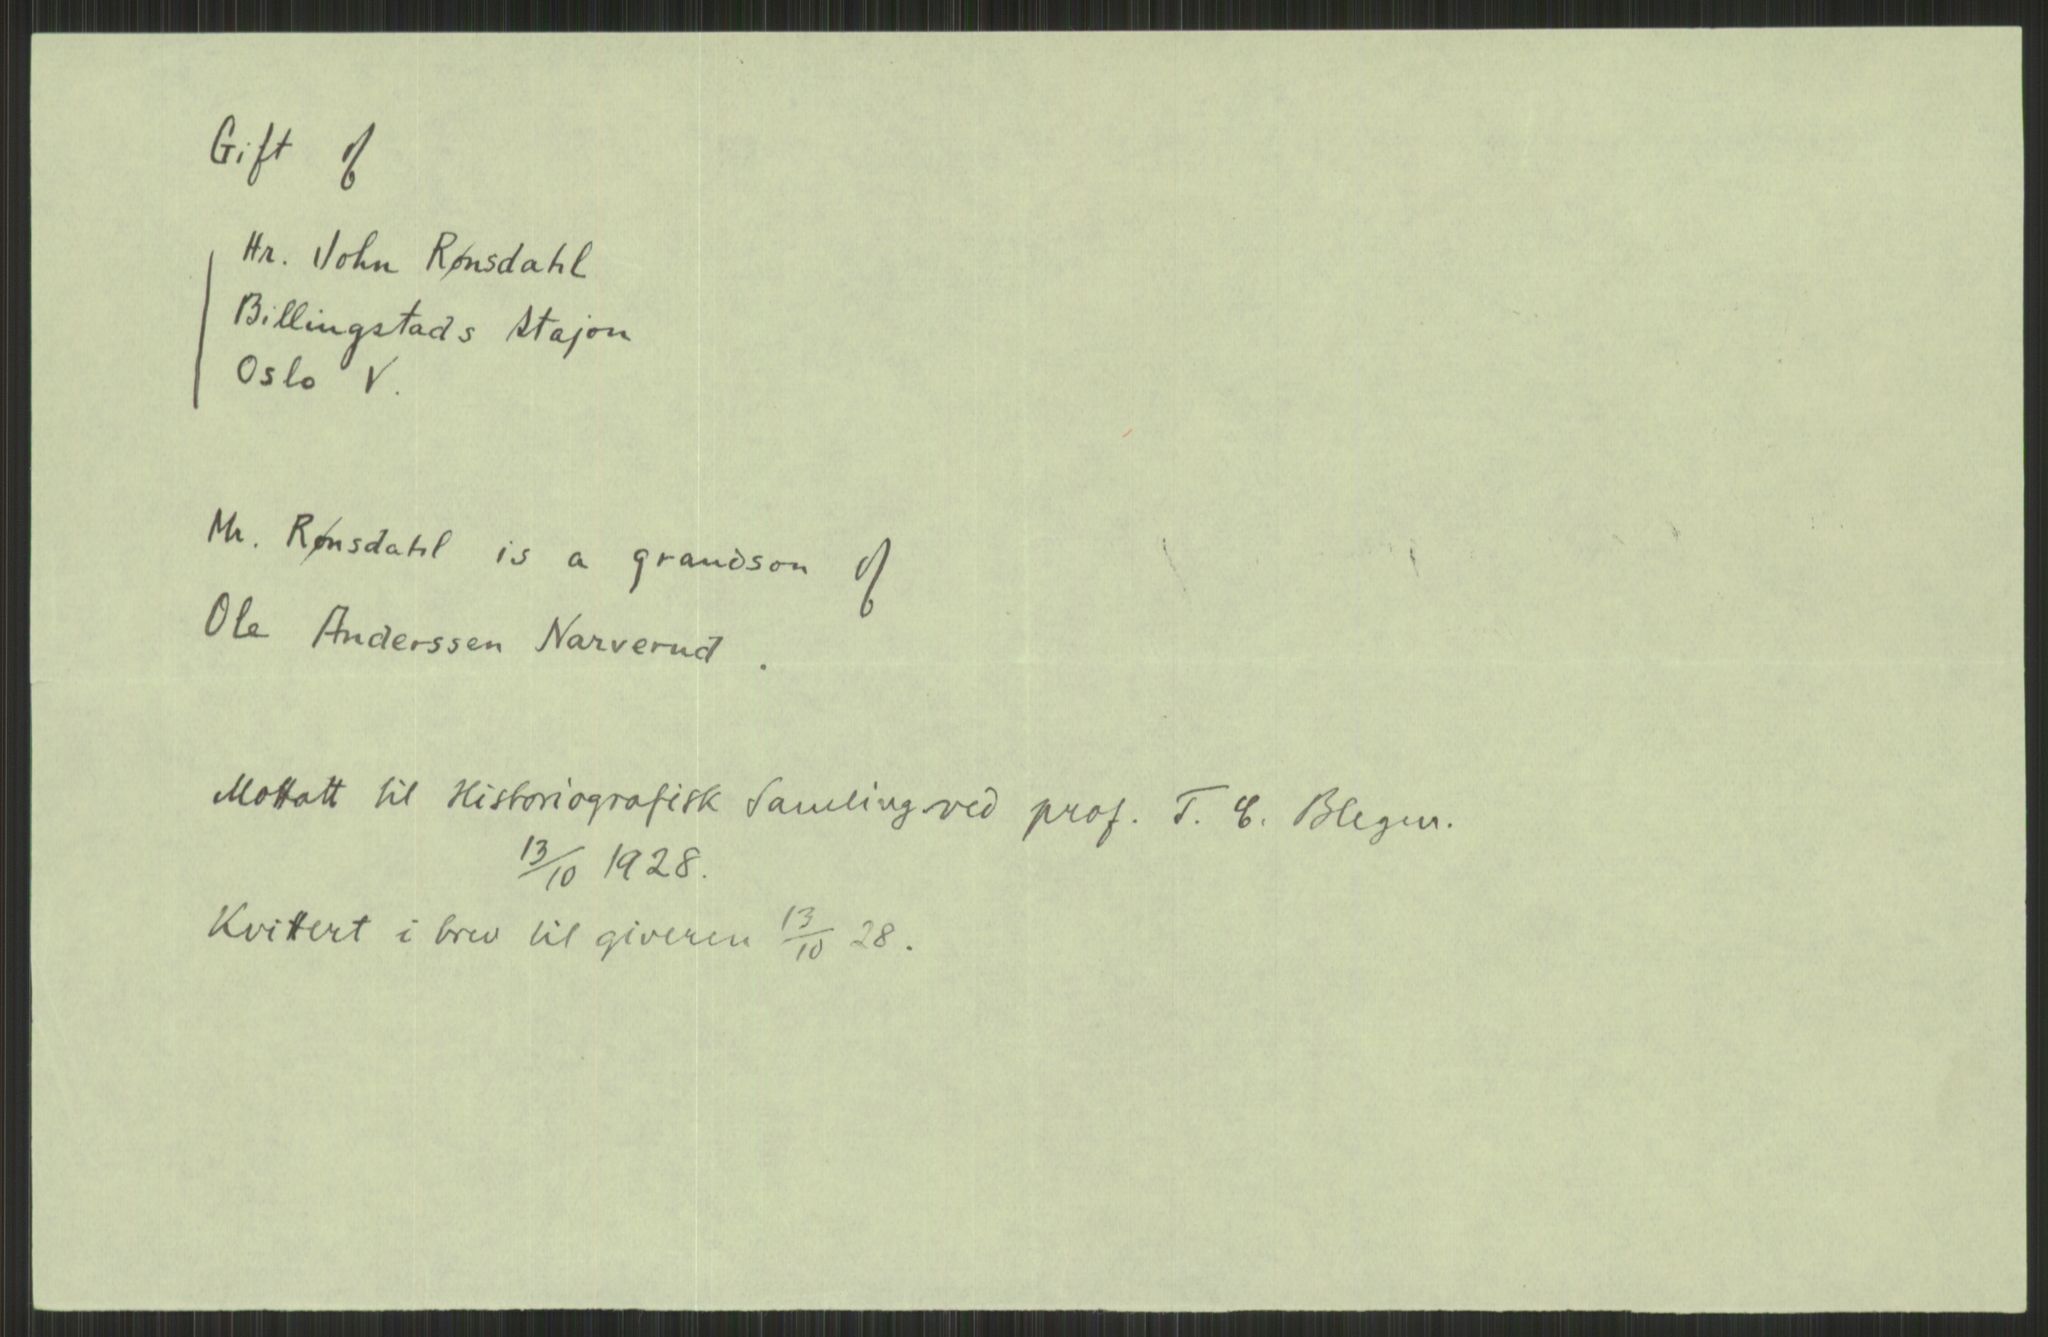 Gift of
Hr. John Rønsdahl
Billingstads Stajon
Oslo V.
Mr. Rønsdahl is a grandson of
Ole Anderssen Narverud.
Mottatt til Historiografisk Samling ved prof. T. C. Blegen.
13/10 1928.
Kvittert i brev til giveren 13/10 28.